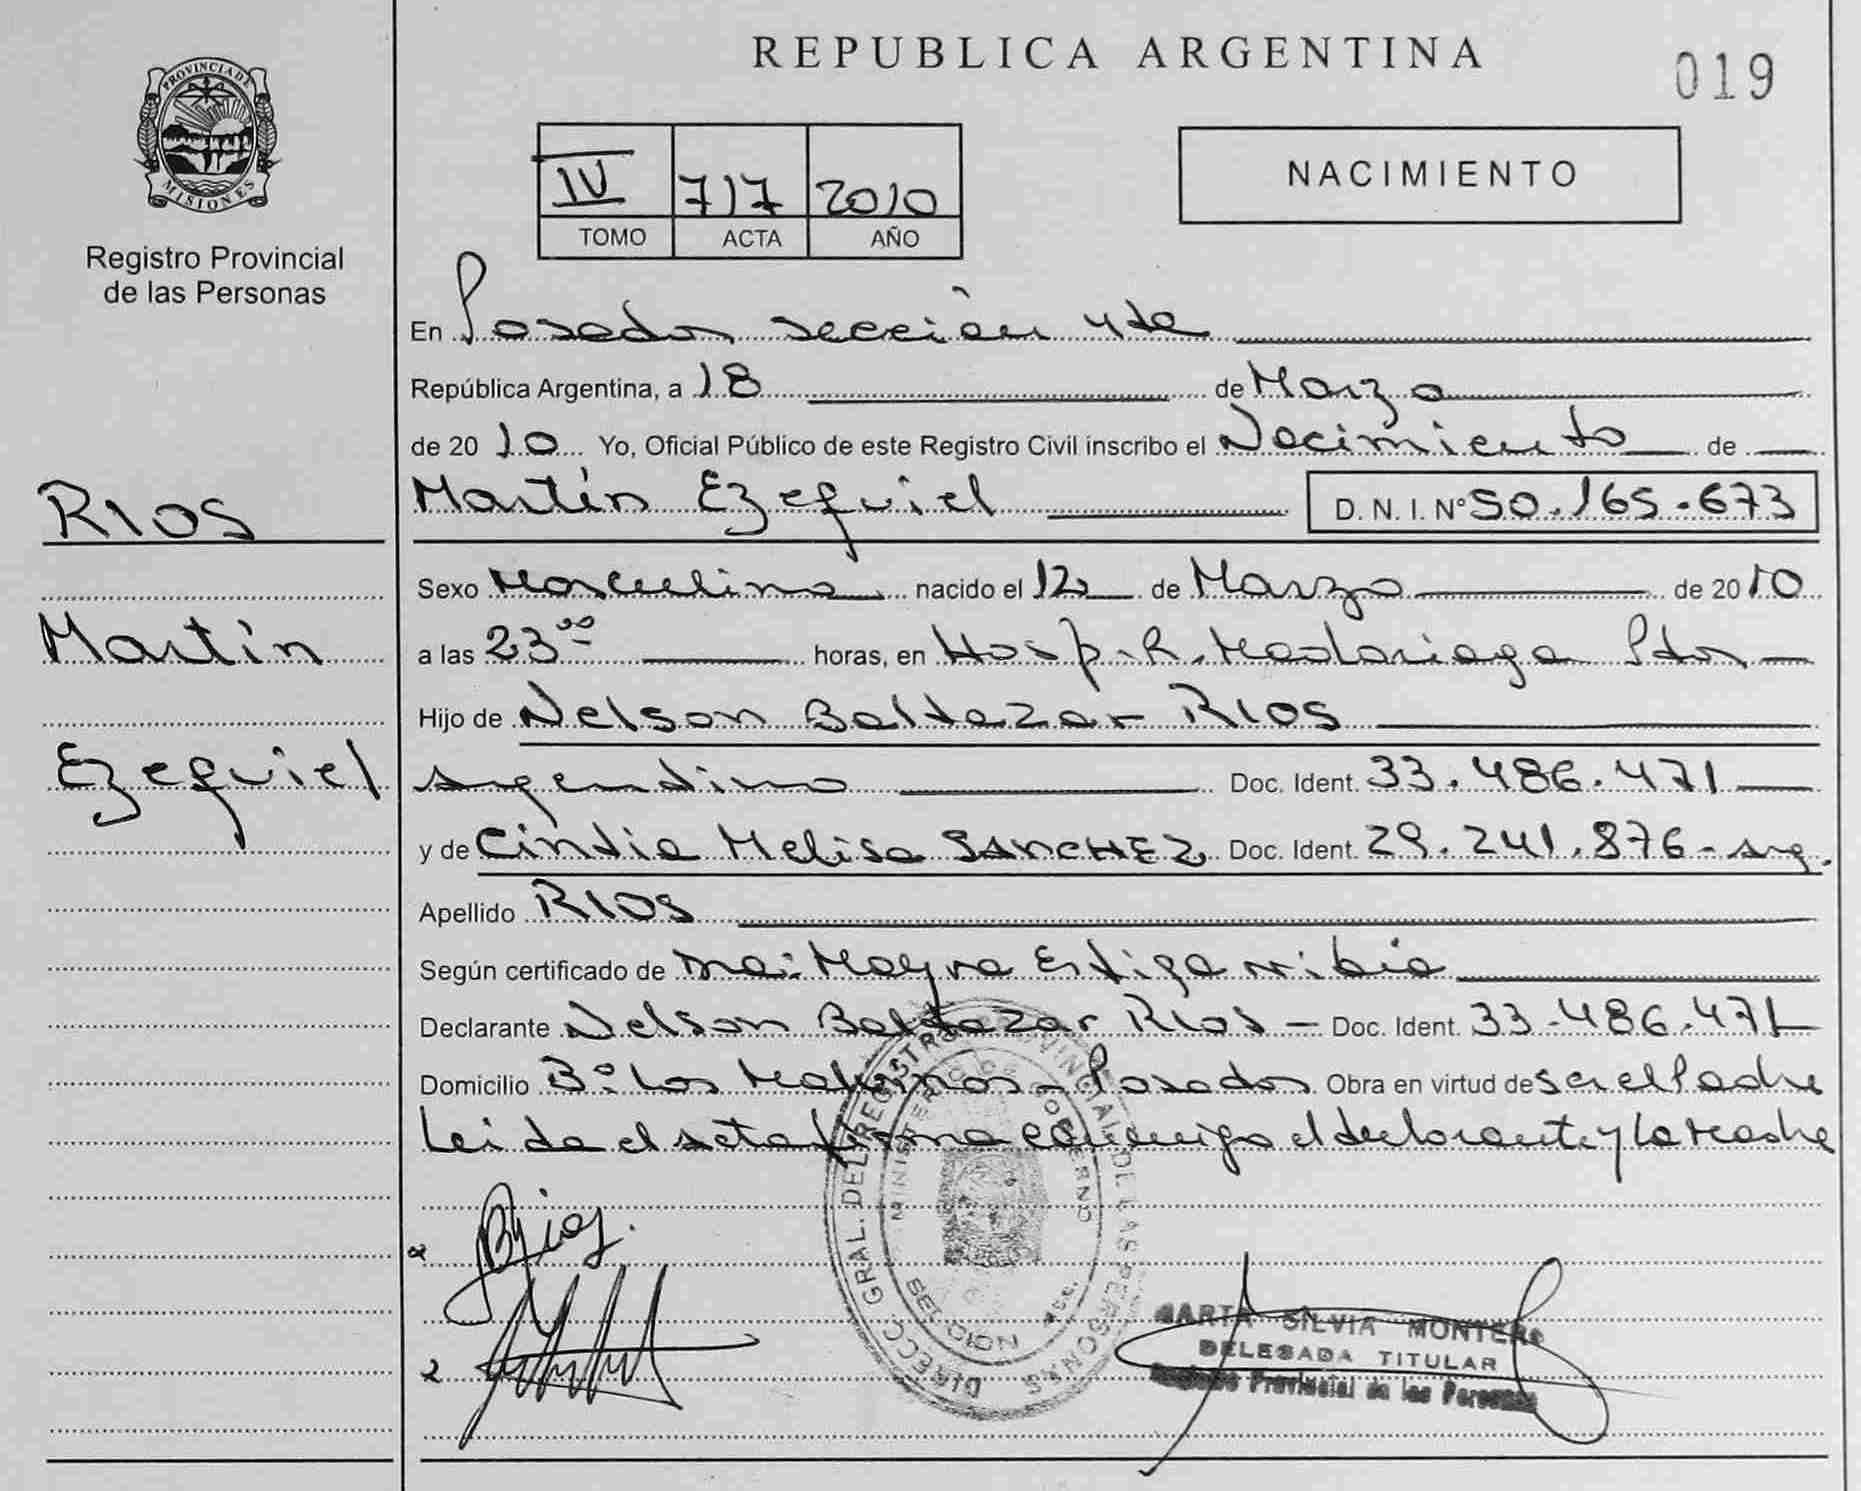 REPUBLICA ARGENTINA
019
PROVINCIA DE MISIONES
Registro Provincial
de las Personas
IV 717 2010
TOMO ACTA AÑO
NACIMIENTO
En Posadas sección 4ta
República Argentina, a 18 de Marzo
de 2010 Yo, Oficial Público de este Registro Civil inscribo el Nacimiento de
Martín Ezequiel D. N. I. Nº 50.165.673
RIOS
Martín
Ezequiel
Sexo Masculino nacido el 12 de Marzo de 2010
a las 23⁰⁰ horas, en Hosp. R. Madariaga Pdas
Hijo de Nelson Baltazar RIOS
argentino Doc. Ident. 33.486.471
y de Cintia Melisa SANCHEZ Doc. Ident. 29.241.876 - arg.
Apellido RIOS
Según certificado de Mayra Estigarribia
Declarante Nelson Baltazar RIOS - Doc. Ident. 33.486.471
Domicilio Bº Los - Posadas Obra en virtud de ser el Padre
Leida el acta firma conmigo el declarante y la Madre
DIRECC. GRAL. DEL REGISTRO PROVINCIAL DE LAS PERSONAS
MINISTERIO DE GOBIERNO
SECCION
MARTA SILVIA MONTERO
DELEGADA TITULAR
Registro Provincial de las Personas